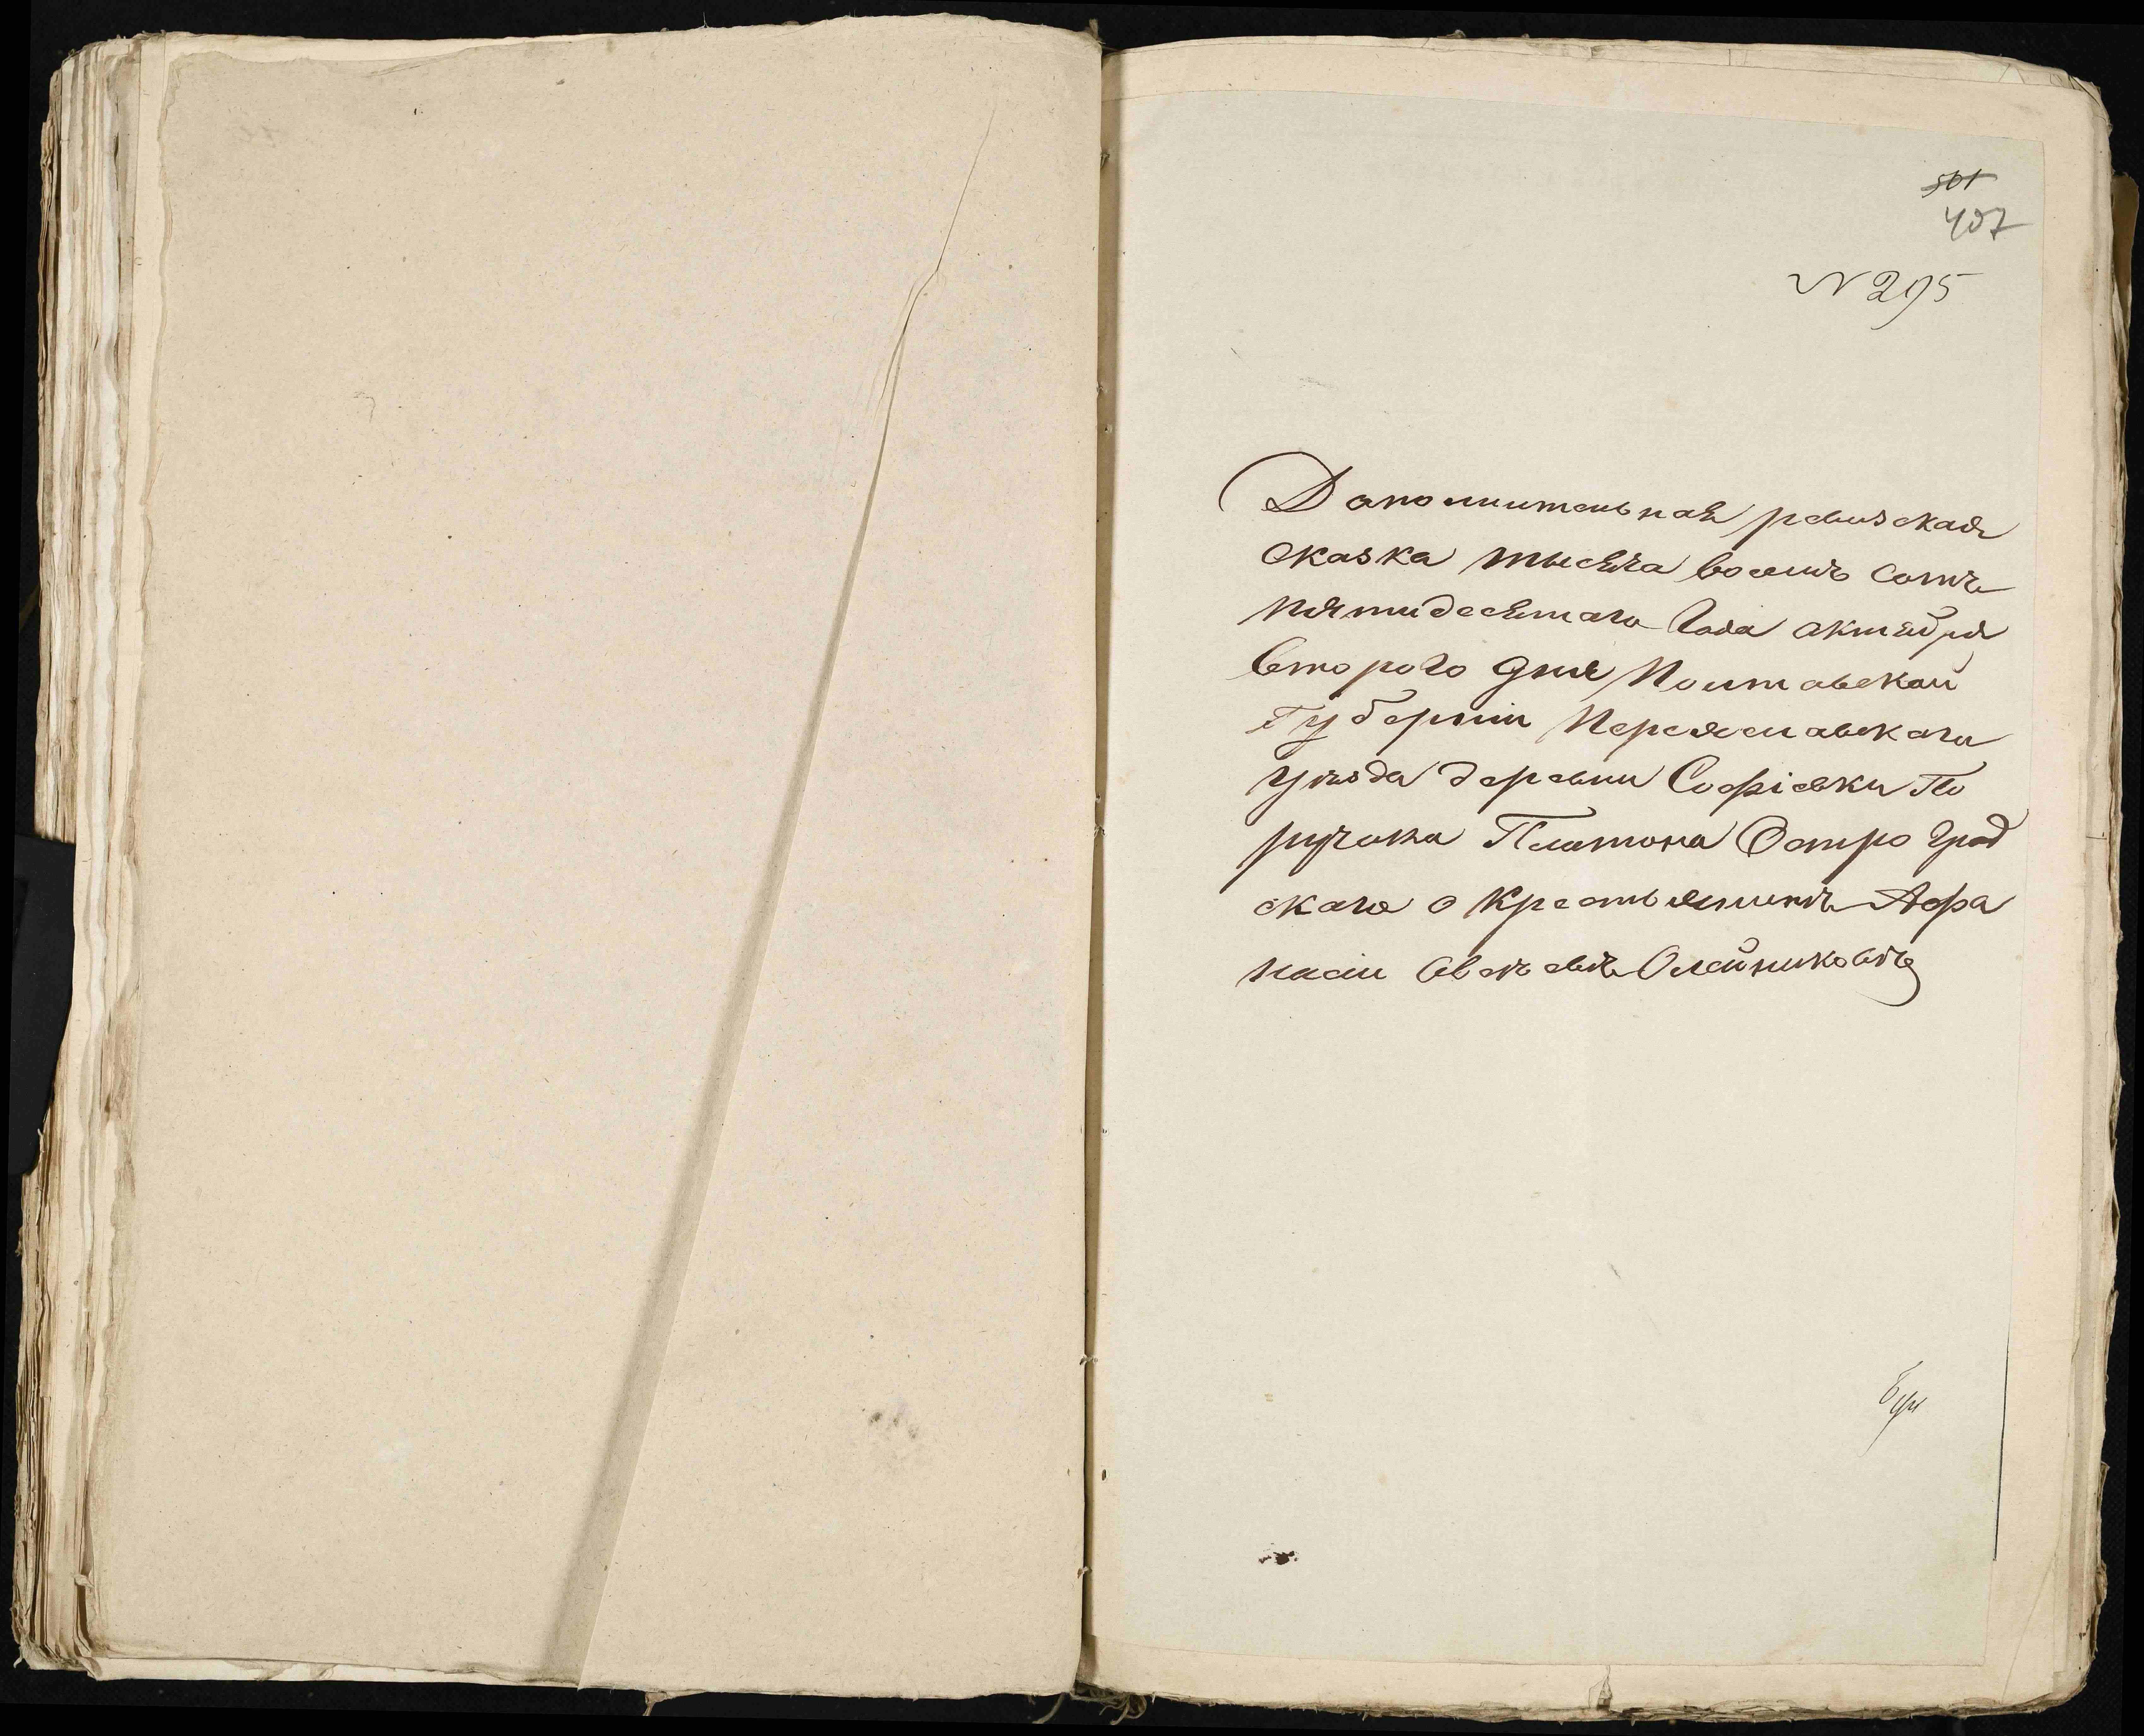 501
407
N 295
Дополнительная ревизская
сказка тысяча восемь сотъ
пятидесятаго года октября
второго дня Полтавской
губернiи Переяславскаго
уѣзда деревни Софiевки По
ручика Платона Остроград
скаго о крестьянинѣ Афа
насiи Олейниковѣ